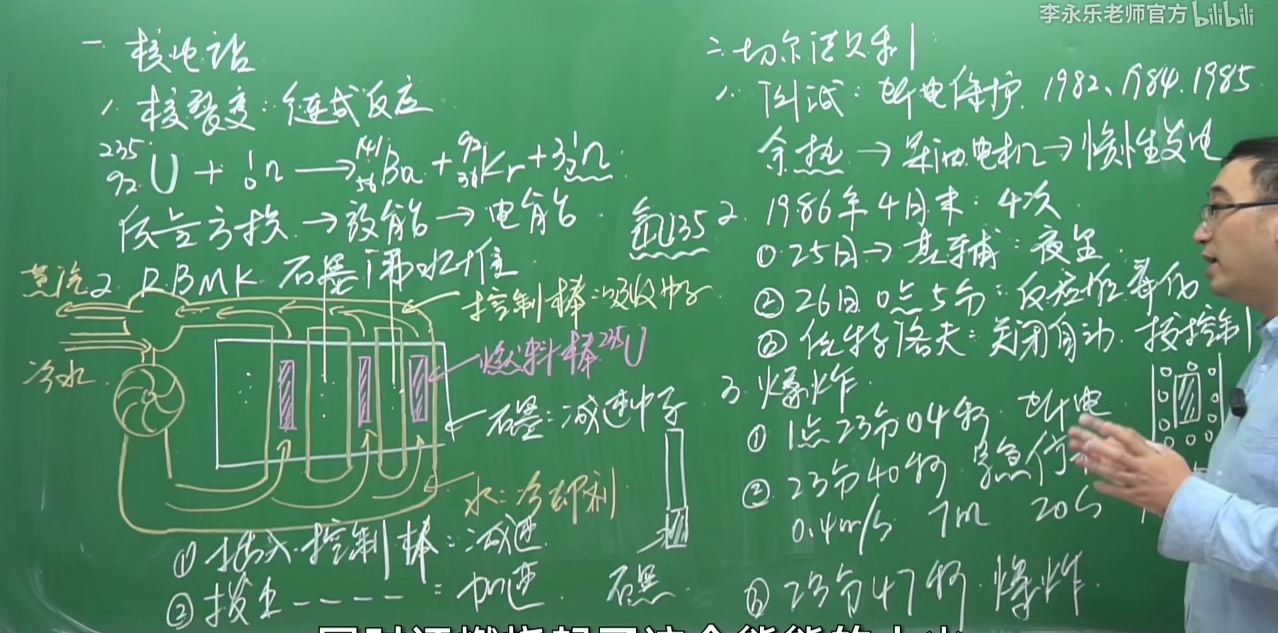 李永乐老师官方 bilibili
一 核电站
1. 核裂变:链式反应
²³⁵₉₂U + ¹₀n → ¹⁴¹₅₆Ba + ⁹²₃₆Kr + 3¹n
质量亏损 → 放能量 → 电能
2. RBMK 石墨沸水堆
蒸汽
冷水
控制棒:吸收中子
燃料棒 ²³⁵U
石墨:减速中子
水:冷却剂
① 插入控制棒:减速
② 拔出 - - - - :加速
石墨
氙135
二.切尔诺贝利
1. 测试:断电保护 1982、1984、1985
余热 → 柴油电机 → 惯性发电
2. 1986年4月末:4次
① 25日 → 基辅:夜里
② 26日0点5分:反应堆毒化
③ 佳特洛夫:关闭自动 拔控制
3 爆炸
① 1点23分04秒 断电
② 23分40秒 紧急停
0.4m/s 7m 20s
③ 23分47秒 爆炸